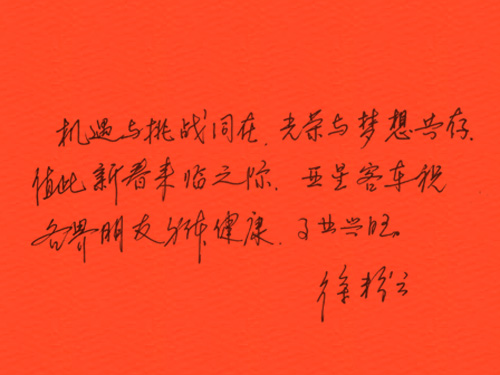 机遇与挑战同在,光荣与梦想共存,
值此新春来临之际,亚星客车祝
各界朋友身体健康,事业兴旺。
徐粉云